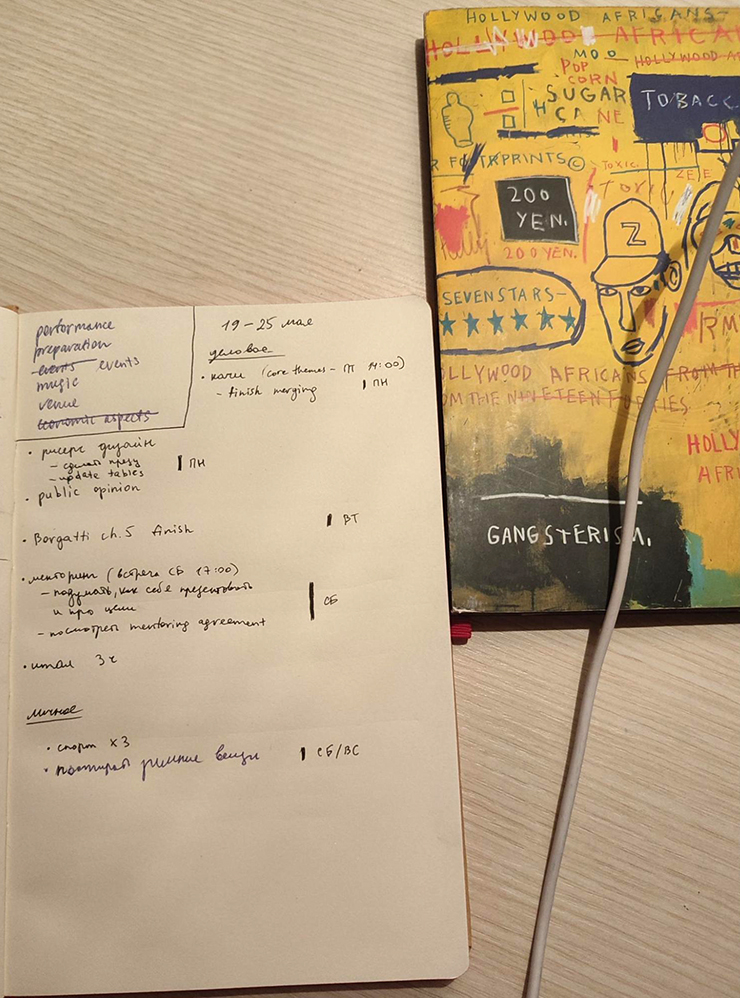 performance
preparation
events events
music
venue
economic aspects
19 – 25 мая
деловое
• качи (core themes – ПТ 14:00)
– finish merging | ПН
• рисерч дизайн
– сделать презу | ПН
– update tables
• public opinion
• Borgatti ch. 5 finish | ВТ
• менторинг (встреча СБ 17:00)
– подумать, как себя презентовать
и про цели | СБ
– посмотреть mentoring agreement
• итал 3ч
личное
• спорт x3
• постирать зимние вещи | СБ/ВС
HOLLYWOOD AFRICANS–
HOLLYWOOD AFRICAN
MOO HOLLYWOOD AF
POP
CORN
SUGAR
CANE
TOBACC
R FOOTRPRINTS©
TOXIC
200
YEN.
200 YEN.
SEVEN STARS–
Z
RM
OLLYWOOD AFRICANS FROM TH
OM THE NINETEEN FORTIES
HOLLY
AFRI
GANGSTERISM,